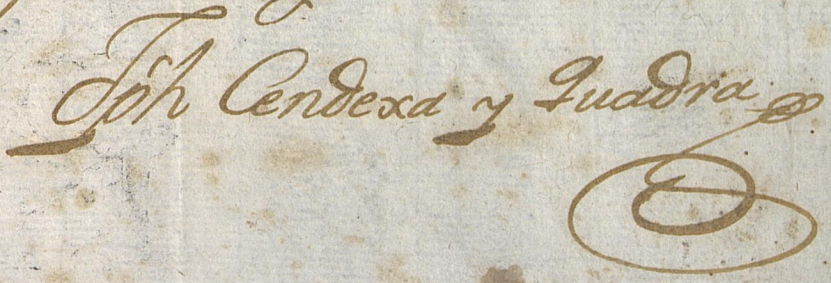 Jph Cendexa y Quadra